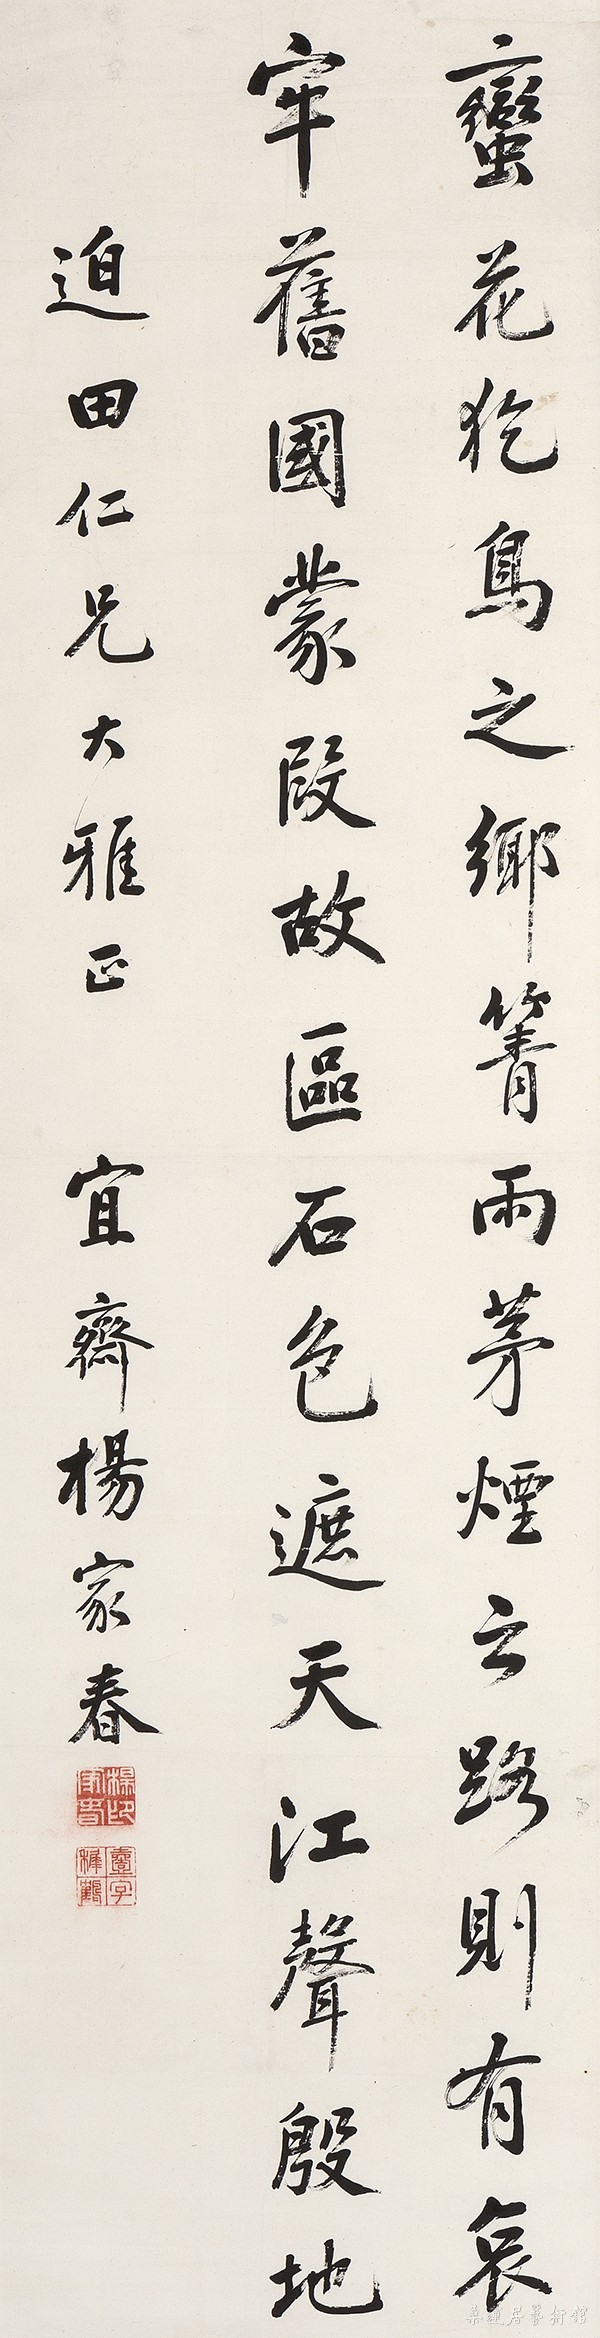 蠻花犵鳥之鄉箐雨茅煙之路則有哀
牢舊國蒙段故區石色遮天江聲殷地
迫田仁兄大雅正 宜齋楊家春
楊家春印
桑蓮居藝術館